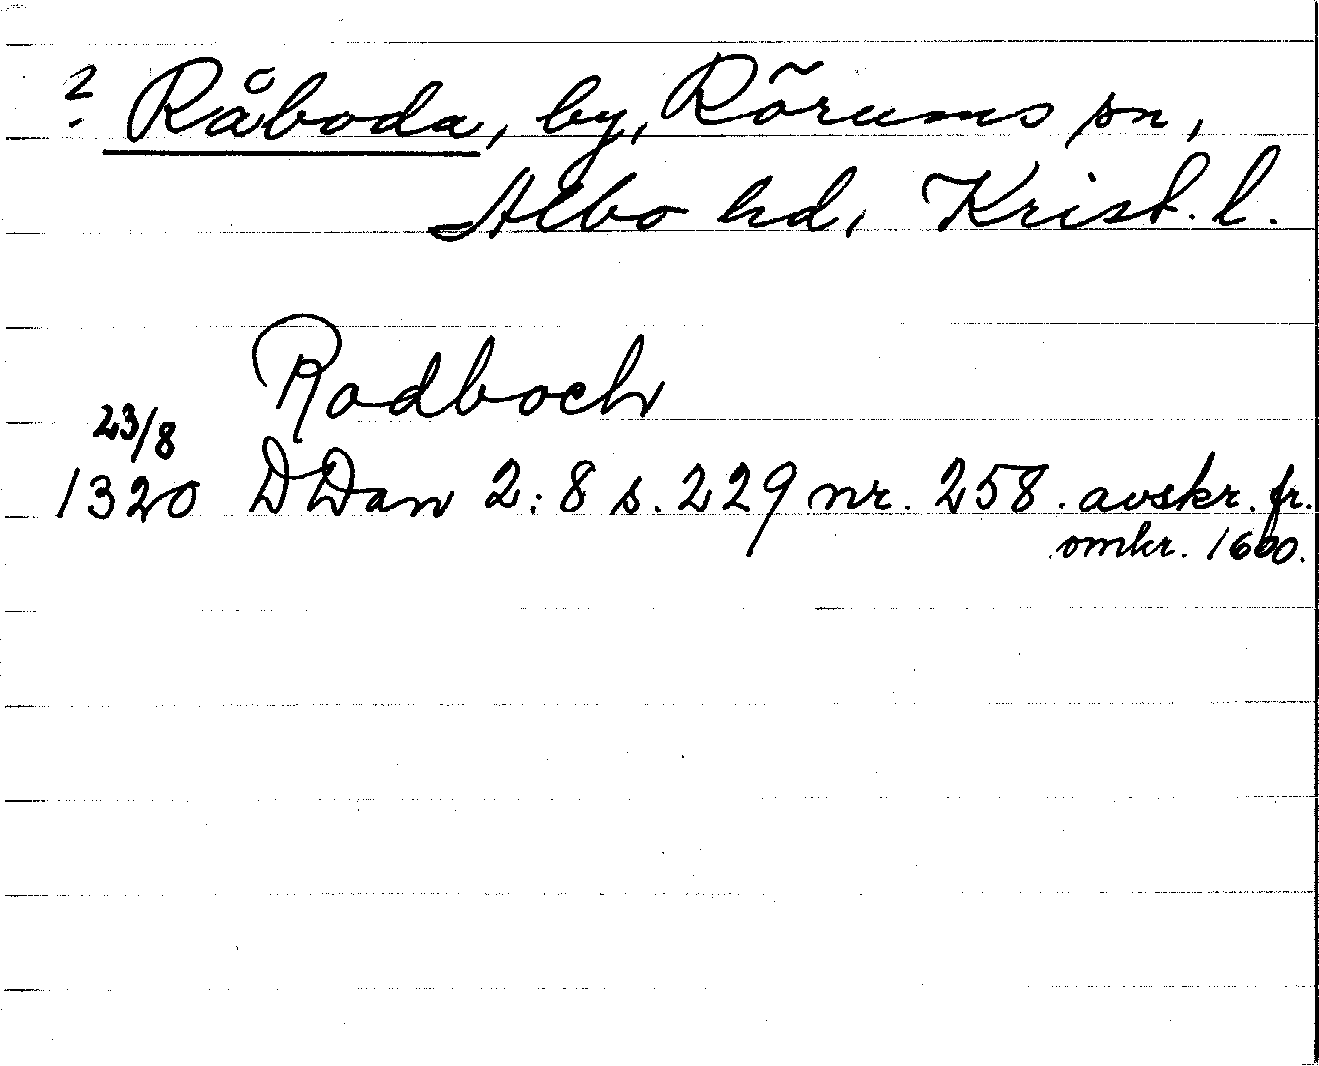 ? Råboda, by, Rörums sn,
Albo hd, Krist. l.
Rodboch
23/8
1320 DDan 2:8 s. 229 nr. 258. avskr. fr.
omkr. 1600.